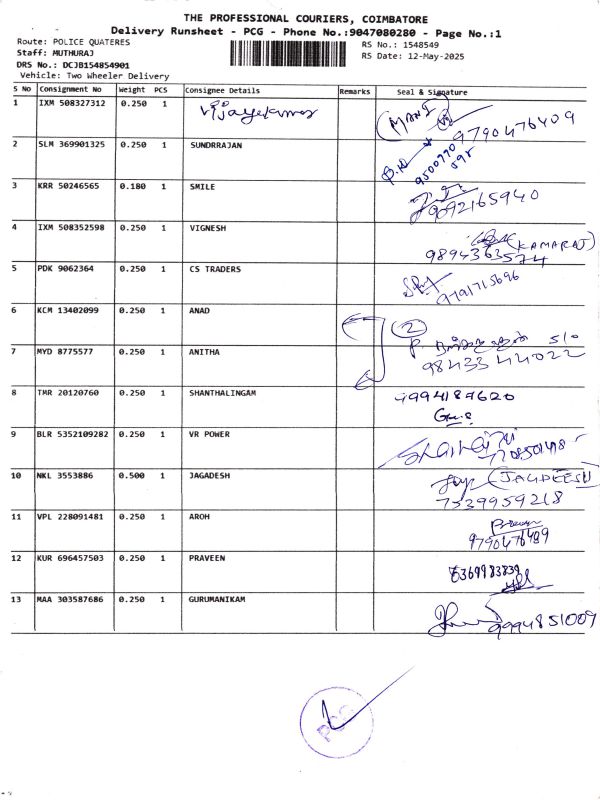 THE PROFESSIONAL COURIERS, COIMBATORE
Delivery Runsheet - PCG - Phone No.:9047080280 - Page No.:1
Route: POLICE QUATERES
RS No.: 1548549
Staff: MUTHURAJ
RS Date: 12-May-2025
DRS No.: DCJB154854901
Vehicle: Two Wheeler Delivery
S No Consignment No Weight PCS Consignee Details Remarks Seal & Signature
1 IXM 508327312 0.250 1 Vijayakumar (MANI) 9790476409
2 SLM 369901325 0.250 1 SUNDRRAJAN 9500770
598
3 KRR 50246565 0.180 1 SMILE 9092165940
4 IXM 508352598 0.250 1 VIGNESH (KAMARAJ)
9894363574
5 PDK 9062364 0.250 1 CS TRADERS 9791715696
6 KCM 13402099 0.250 1 ANAD 2
S/O
7 MYD 8775577 0.250 1 ANITHA 98433 44022
8 TMR 20120760 0.250 1 SHANTHALINGAM 9994187620
9 BLR 5352109282 0.250 1 VR POWER
10 NKL 3553886 0.500 1 JAGADESH (JAGDEESH)
7339959218
11 VPL 228091481 0.250 1 AROH Praveen
9790476489
12 KUR 696457503 0.250 1 PRAVEEN 6369983839
13 MAA 303587686 0.250 1 GURUMANIKAM 9994851009
PCG